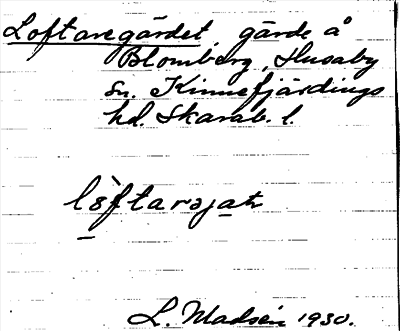 Loftaregärdet, gärde å
Blomberg, Husaby
sn. Kinnefjärdings
hd. Skarab. l.
L. Madsén 1930.